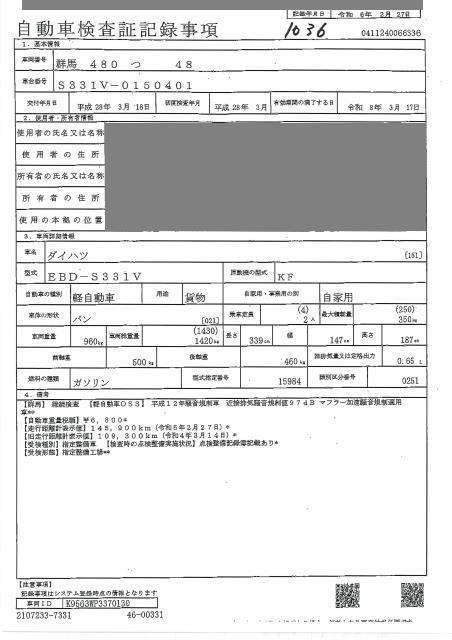 記録年月日 令和 6年 2月 27日
自動車検査証記録事項
1036
0411240066336
1. 基本情報
車両番号 群馬 480 つ 48
車台番号 S331V-0150401
交付年月日 平成 28年 3月 18日 初度検査年月 平成 28年 3月 有効期間の満了する日 令和 8年 3月 17日
2. 使用者・所有者情報
使用者の氏名又は名称
使用者の住所
所有者の氏名又は名称
所有者の住所
使用の本拠の位置
3. 車両詳細情報
車名 ダイハツ [161]
型式 EBD-S331V 原動機の型式 KF
自動車の種別 軽自動車 用途 貨物 自家用・事務用の別 自家用
車体の形状 バン [021] 乗車定員 (4) 2人 最大積載量 (250) 350kg
車両重量 960kg 車両総重量 (1430) 1420kg 長さ 339cm 幅 147cm 高さ 187cm
前軸重 500kg 後軸重 460kg 総排気量又は定格出力 0.65 L
燃料の種類 ガソリン 型式指定番号 15984 類別区分番号 0251
4. 備考
【群馬】 継続検査 【軽自動車OSS】 平成12年騒音規制車 近接排気騒音規制値97dB マフラー加速騒音規制適用
車**
【自動車重量税額】 ¥6,600*
【走行距離計表示値】 145,900km (令和6年2月27日)*
【旧走行距離計表示値】 109,300km (令和4年3月14日)*
【受検種別】 指定整備車 【検査時の点検整備実施状況】 点検整備記録簿記載あり*
【受検形態】 指定整備工場**
【注意事項】
記録事項はシステム登録時点の情報となります
車両ID K9563WP3370130
2107233-7331 46-00331